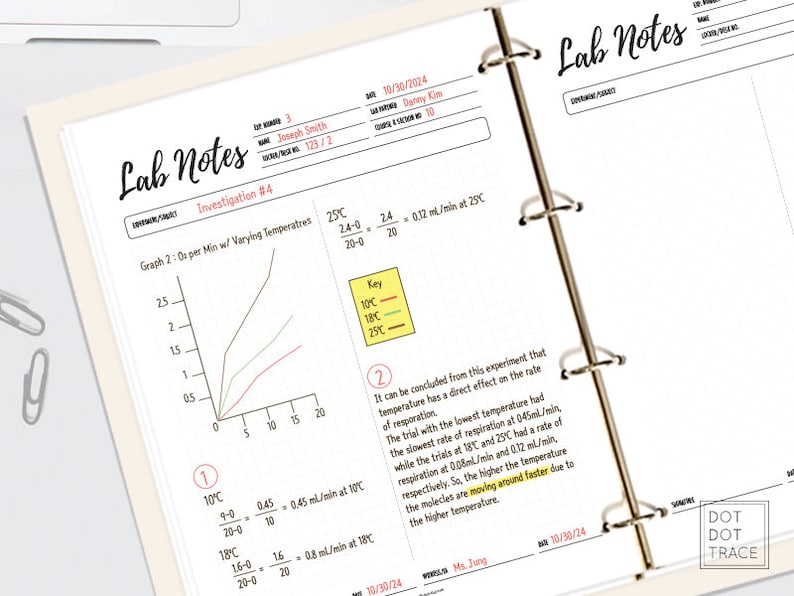 Lab Notes
EXP. NUMBER 3
DATE 10/30/2024
NAME Joseph Smith
LAB PARTNER Danny Kim
LOCKER/DESK NO. 123 / 2
COURSE & SECTION NO 10
EXPERIMENT/SUBJECT Investigation #4
Graph 2 : O₂ per Min w/ Varying Temperatres
2.5
2
1.5
1
0.5
0
5
10
15
20
1
10℃
9-0
20-0
=
0.45
10
= 0.45 mL/min at 10℃
18℃
1.6-0
20-0
=
1.6
20
= 0.8 mL/min at 18℃
25℃
2.4-0
20-0
=
2.4
20
= 0.12 mL/min at 25℃
Key
10℃
18℃
25℃
2
It can be concluded from this experiment that
temperature has a direct effect on the rate
of resporation.
The trial with the lowest temperature had
the slowest rate of respiration at 0.45mL/min,
while the trials at 18℃ and 25℃ had a rate of
respiration at 0.08mL/min and 0.12 mL/min,
respectively. So, the higher the temperature
the molecles are moving around faster due to
the higher temperature.
10/30/24
WITNESS/TA Ms. Jung
DATE 10/30/24
Lab Notes
EXP. NUMBER
NAME
LOCKER/DESK NO.
EXPERIMENT/SUBJECT
SIGNATURE
DOT
DOT
TRACE